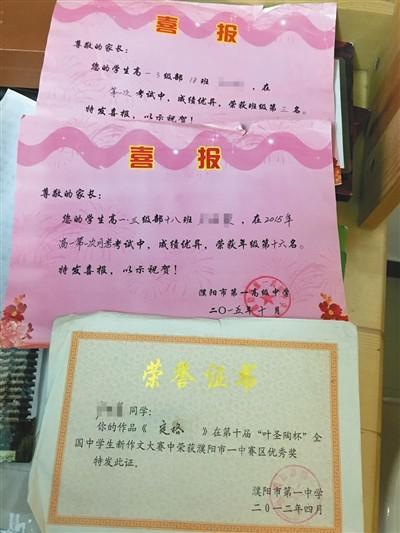 喜报
尊敬的家长:
您的学生高一3级部18班,在
第一次考试中,成绩优异,荣获班级第三名。
特发喜报,以示祝贺!
喜报
尊敬的家长:
您的学生高一·三级部十八班,在2015年
高一第一次月考考试中,成绩优异,荣获年级第十六名。
特发喜报,以示祝贺!
濮阳市第一高级中学
二〇一五年十月
荣誉证书
同学:
你的作品《定格》在第十届“叶圣陶杯”全
国中学生新作文大赛中荣获濮阳市一中赛区优秀奖
特发此证。
濮阳市第一中学
二〇一二年四月